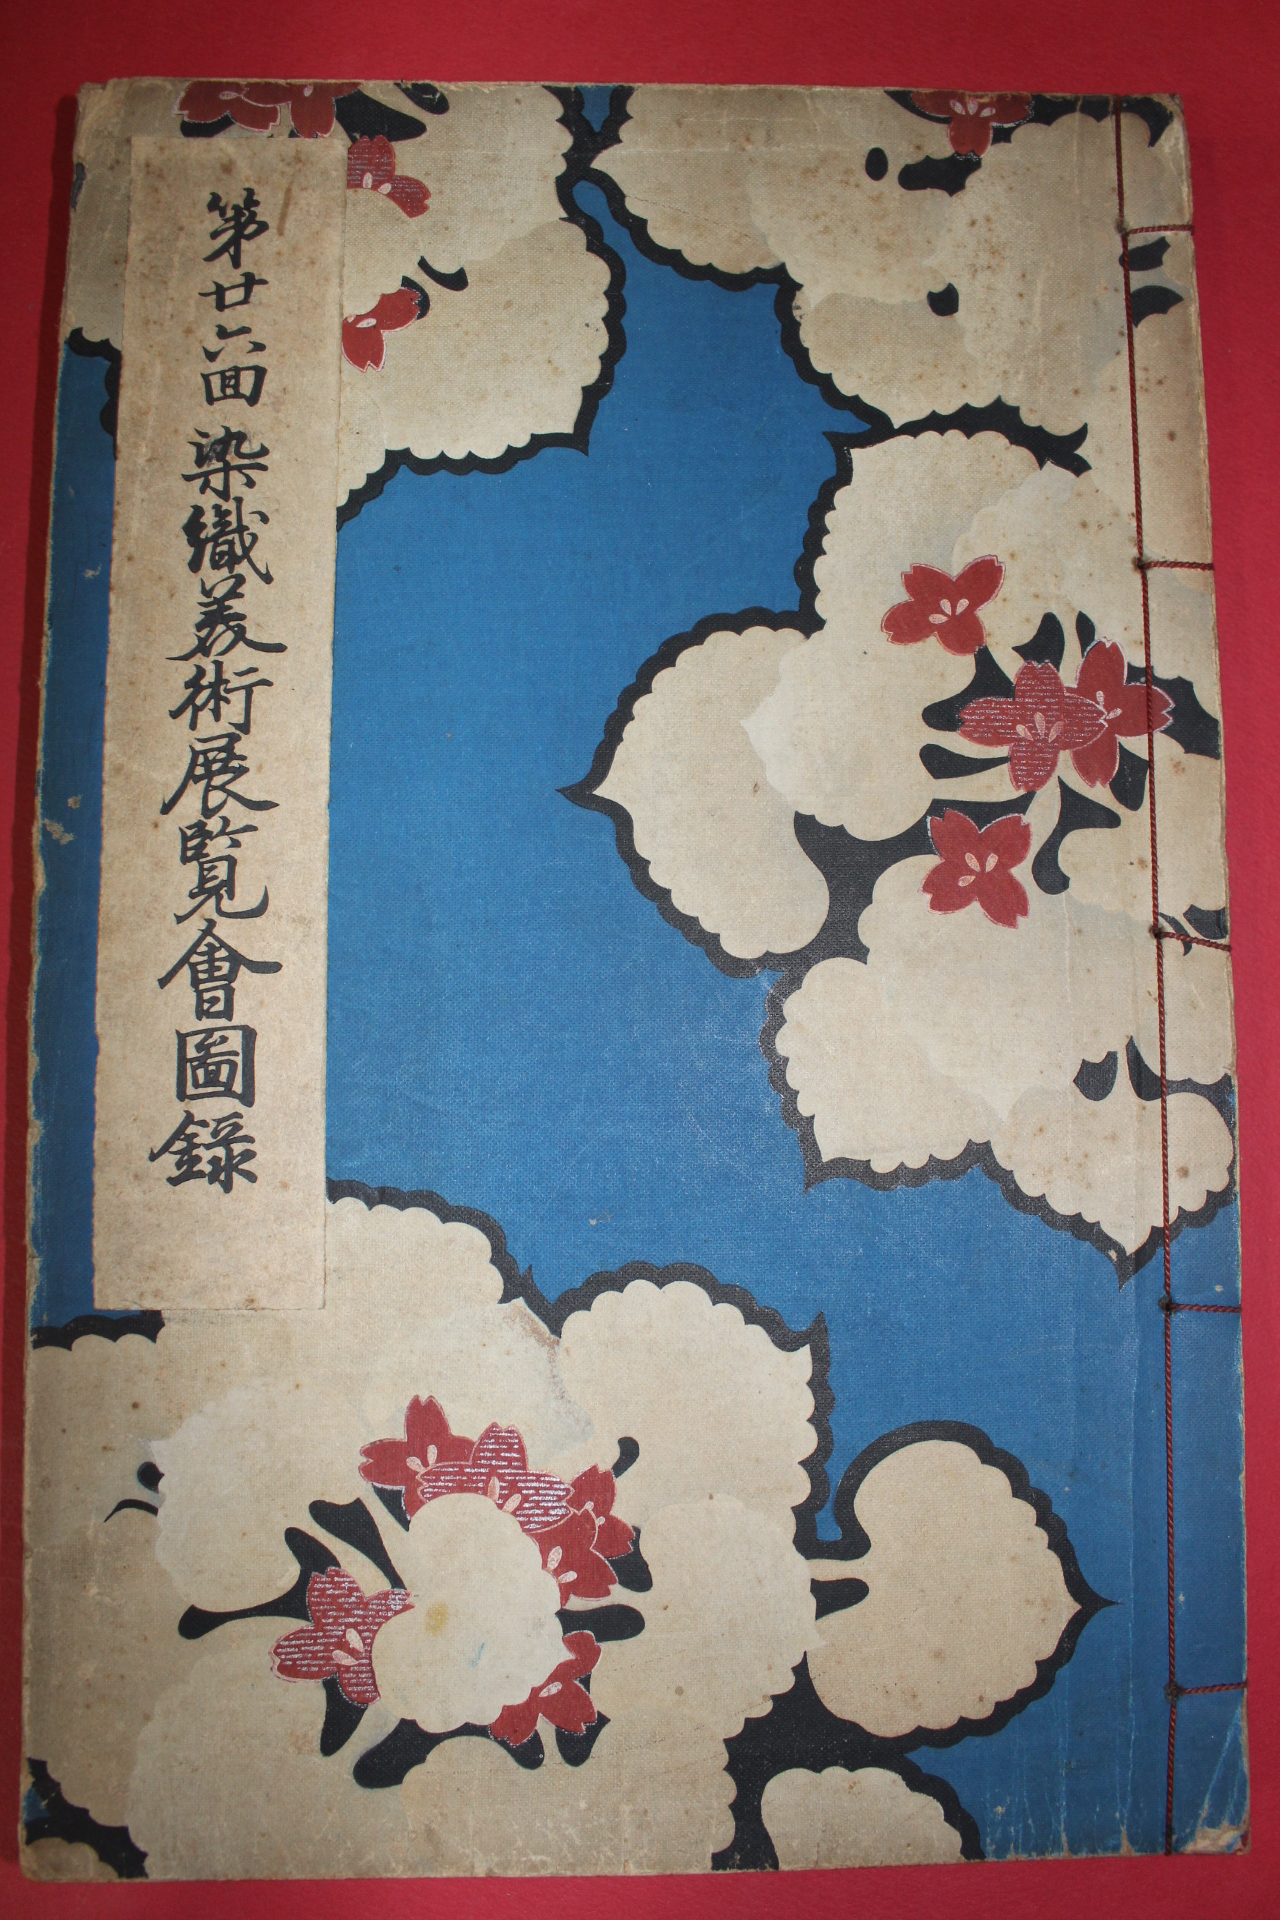 第廿六回染織美術展覧會圖録